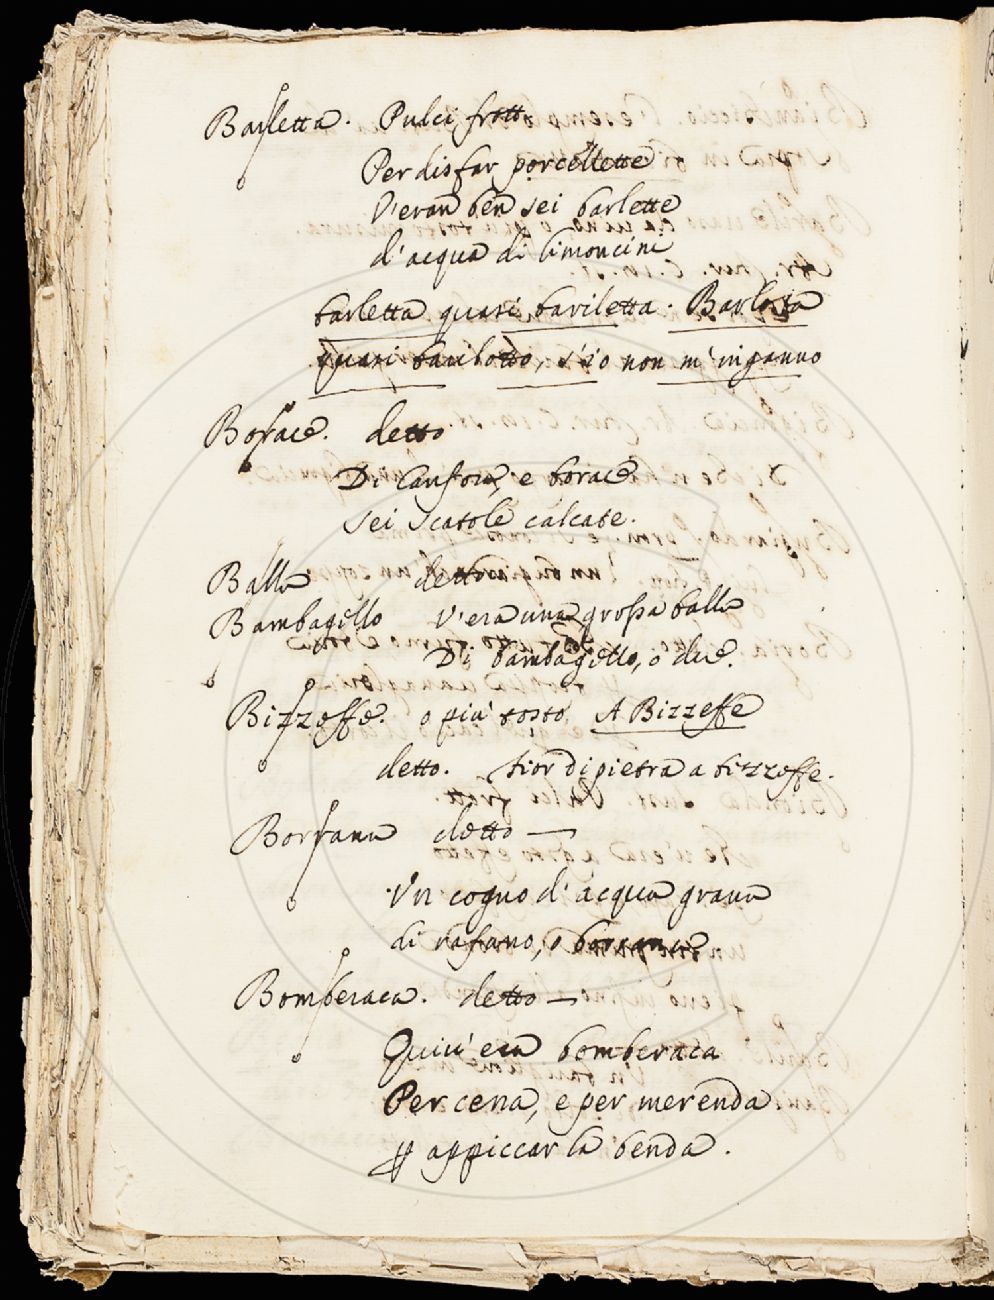 Barletta. Pulci frott.
Per disfar porcellette
V'eran ben sei barlette
d'acqua di limoncini
barletta quasi bariletta. Barlotta
quasi barilotto, s'io non m'inganno
Borace. detto
Di Canfora, e borace
sei scatole calcate.
Balla detto
Bambagello V'era una grossa balla
Di bambagello, o due.
Bizzeffe. o più tosto A Bizzeffe
detto. fior di pietra a bizzeffe.
Borrana detto —
Un cogno d'acqua grana
di rafano, o borrana
Bomberaca. detto —
Quivi era bomberaca
Per cena, e per merenda
appiccar la benda.